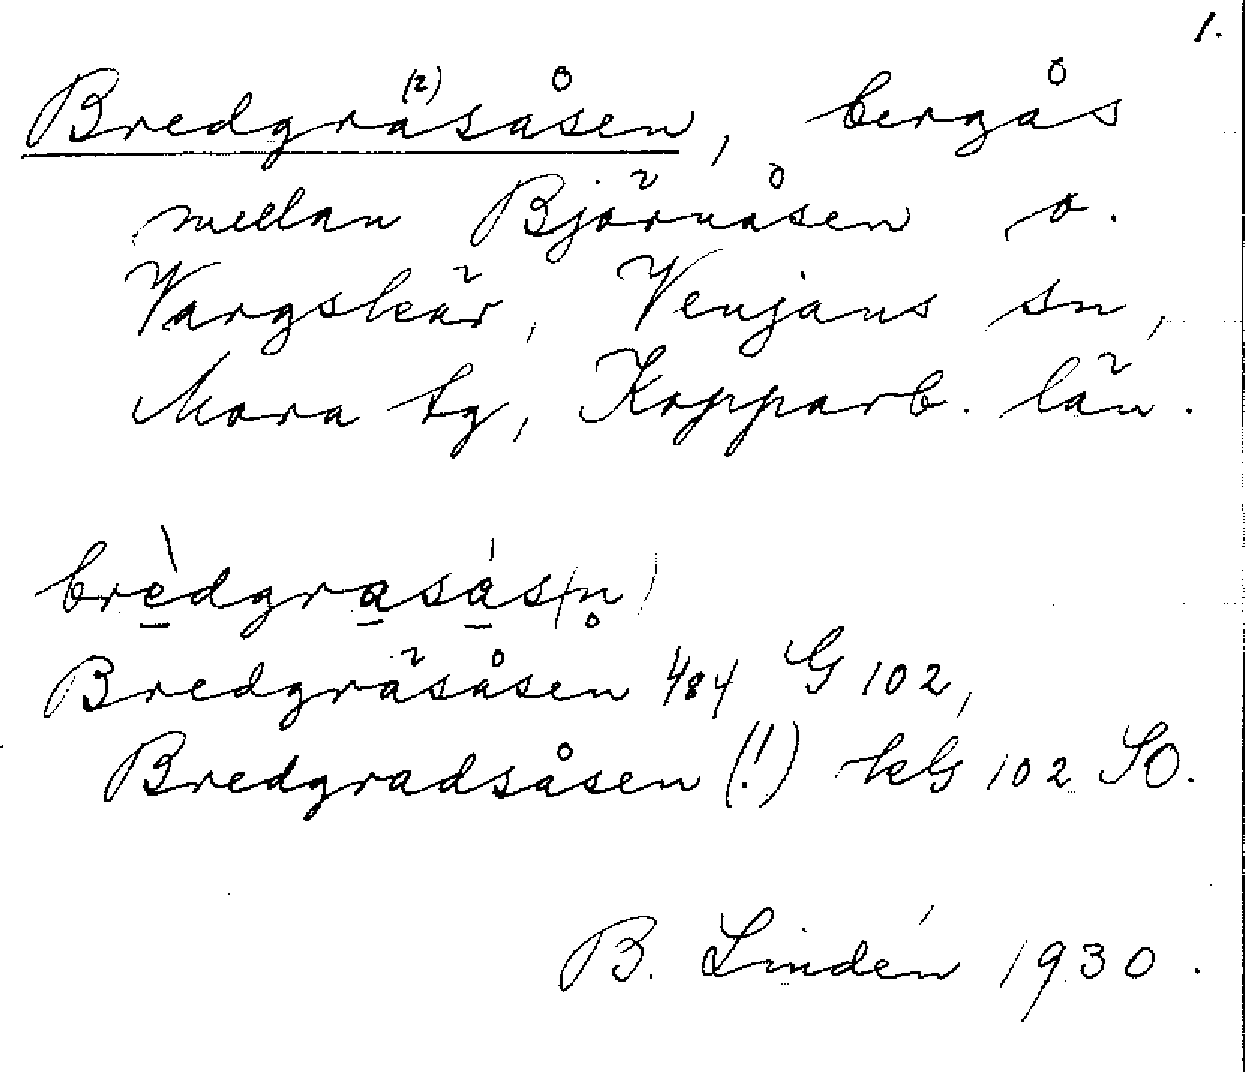 1.
Bredgräsåsen, bergås
mellan Björnåsen o.
Vargskär, Venjans sn,
Mora tg, Kopparb. län.
brèdgrasás(n̥)
Bredgräsåsen 484 G 102,
Bredgradsåsen (!) kG 102 SO.
B. Lindén 1930.